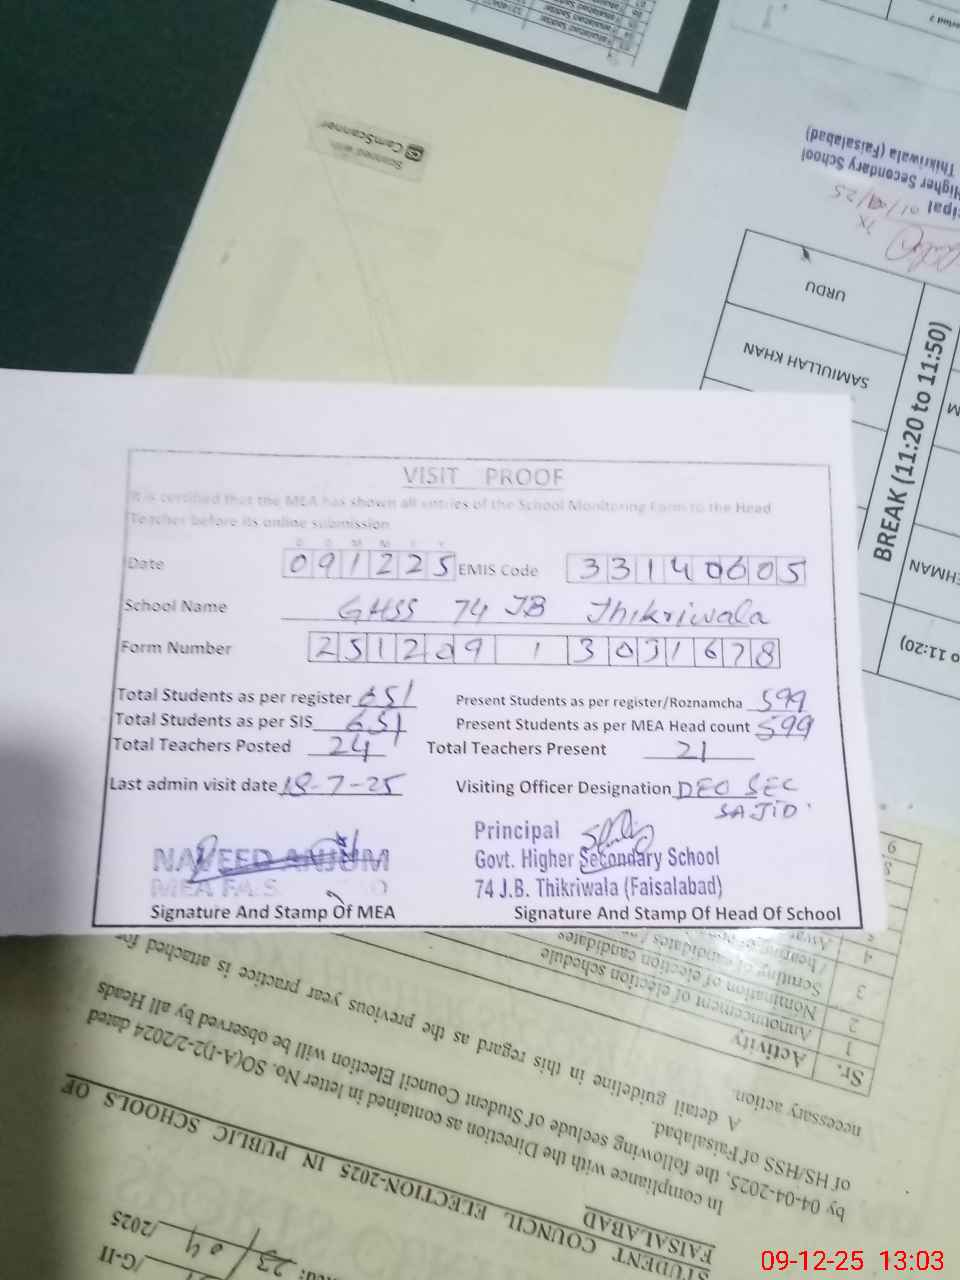 VISIT PROOF
It is certified that the MEA has shown all entries of the School Monitoring Form to the Head
Teacher before its online submission
D D M M Y Y
Date 091225 EMIS Code 33140605
School Name GHSS 74 JB Thikriwala
Form Number 251209 1 3031678
Total Students as per register 651 Present Students as per register/Roznamcha 599
Total Students as per SIS 651 Present Students as per MEA Head count 599
Total Teachers Posted 24 Total Teachers Present 21
Last admin visit date 18-7-25 Visiting Officer Designation DEO SEC
SAJID
NAVEED ANJUM
MEA F.A.S.
Signature And Stamp Of MEA
Principal
Govt. Higher Secondary School
74 J.B. Thikriwala (Faisalabad)
Signature And Stamp Of Head Of School
Scanned with
CamScanner
Higher Secondary School
Thikriwala (Faisalabad)
URDU
SAMIULLAH KHAN
BREAK (11:20 to 11:50)
23/04/2025
STUDENT COUNCIL ELECTION-2025 IN PUBLIC SCHOOLS OF
FAISALABAD
In compliance with the Direction as contained in letter No. SO(A-I)2-2/2024 dated
04-04-2025, the following seclude of Student Council Election will be observed by all Heads
of HS/HSS of Faisalabad.
A detail guideline in this regard as the previous year practice is attached for
necessary action.
Sr. Activity
1 Announcement of election schedule
2 Nomination of election candidates
3
4
09-12-25 13:03